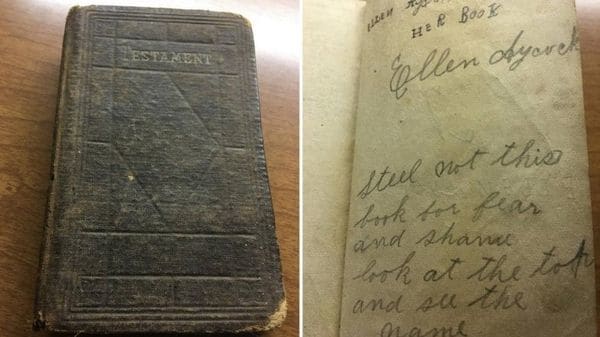 TESTAMENT
ELLEN
HER BOOK
Ellen Aycock
Steel not this
book for fear
and shame
look at the top
and see the
name